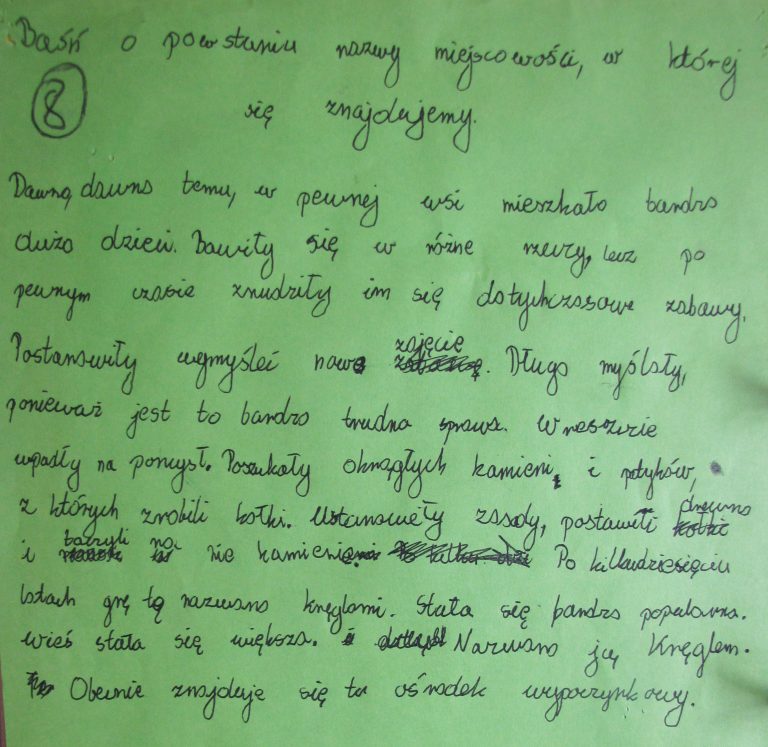 Baśń o powstaniu nazwy miejscowości, w której
8 się znajdujemy.
Dawno, dawno temu, w pewnej wsi mieszkało bardzo
dużo dzieci. Bawiły się w różne rzeczy, lecz po
pewnym czasie znudziły im się dotychczasowe zabawy.
Postanowiły wymyśleć nowe zajęcie. Długo myślały,
ponieważ jest to bardzo trudna sprawa. Wreszcie
wpadły na pomysł. Poszukały okrągłych kamieni, i patyków,
z których zrobili kołki. Ustanowiły zasady, postawili drewno
i toczyli na nie kamienie. Po kilkudziesięciu
latach grę tę nazwano kręglami. Stała się bardzo popularna.
Wieś stała się większa. Nazwano ją Kręglem.
Obecnie znajduje się tu ośrodek wypoczynkowy.